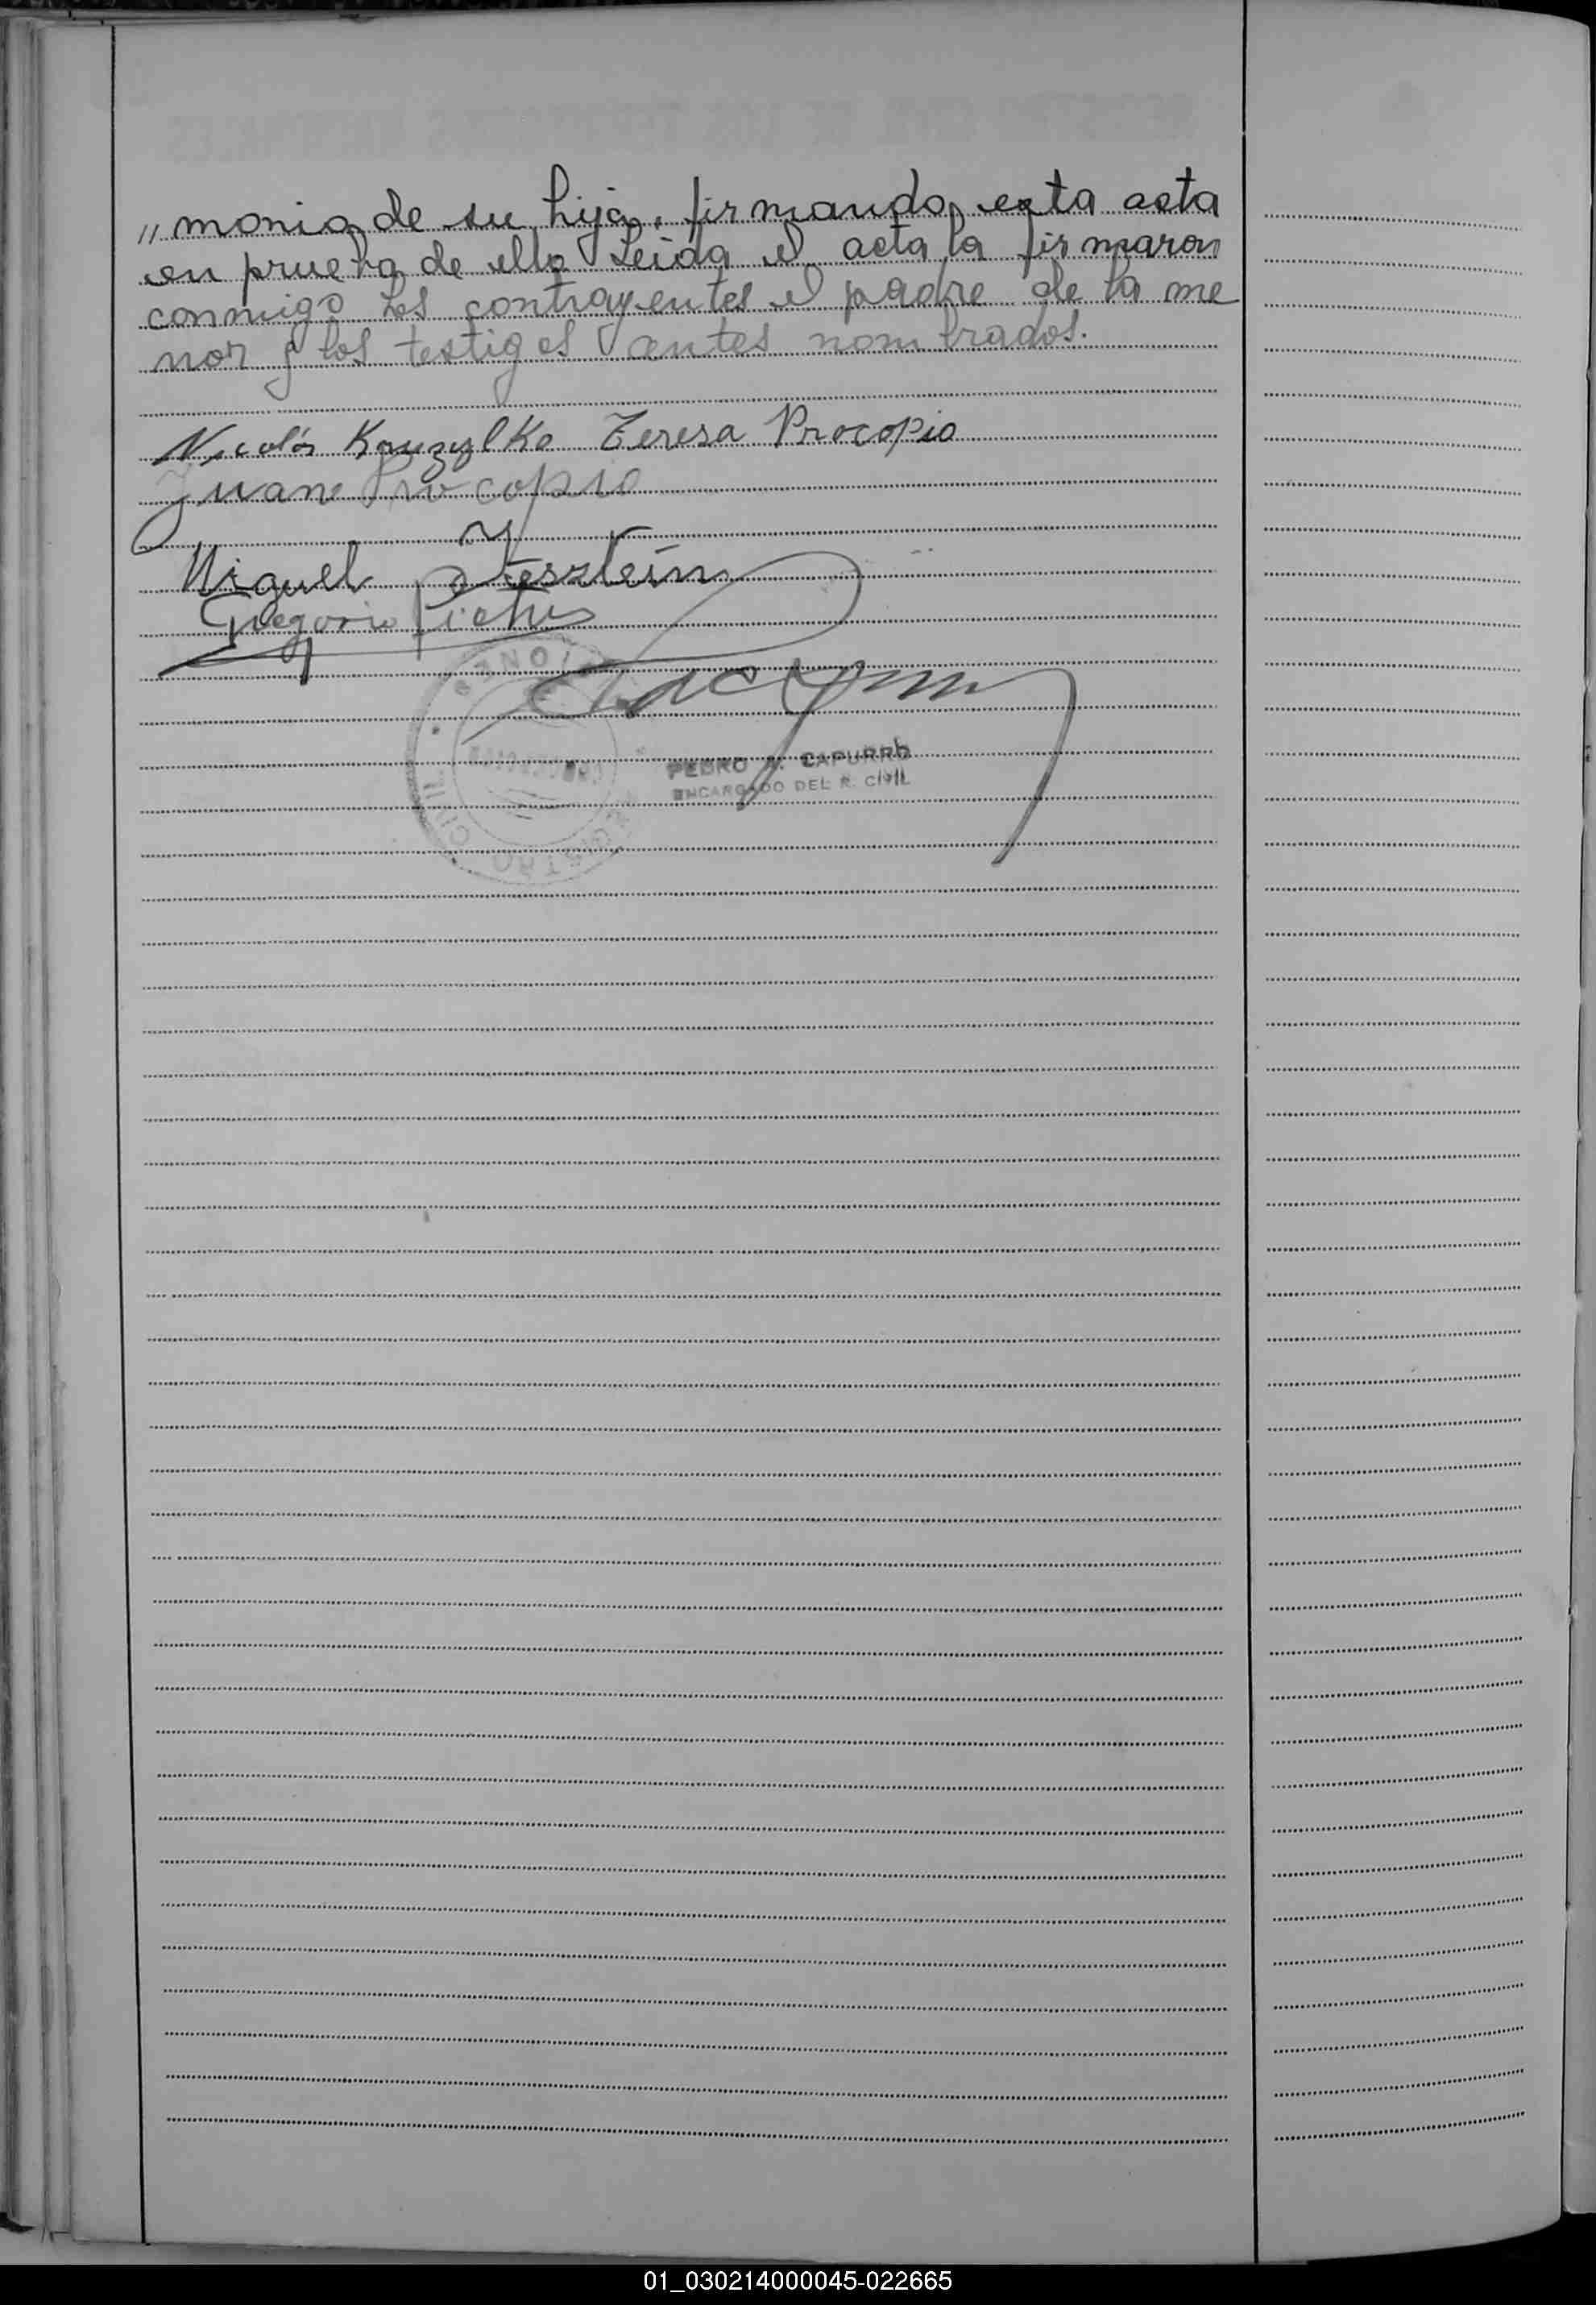 〃monio de su hija, firmando esta acta
en prueba de ello Leida el acta la firmaron
conmigo Los contrayentes el padre de la me
nor y los testigos antes nombrados.
Nicolás Kouzylko Teresa Procopio
Juan Procopio
Miguel
Gregorio
PEDRO A. CAPURRO
ENCARGADO DEL R. CIVIL
REGISTRO CIVIL
01_030214000045-022665